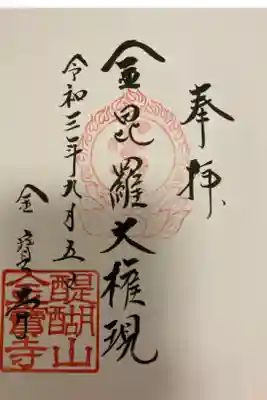 奉拝
金毘羅大権現
令和三年九月五日
金寳寺
醍醐山
金寶寺